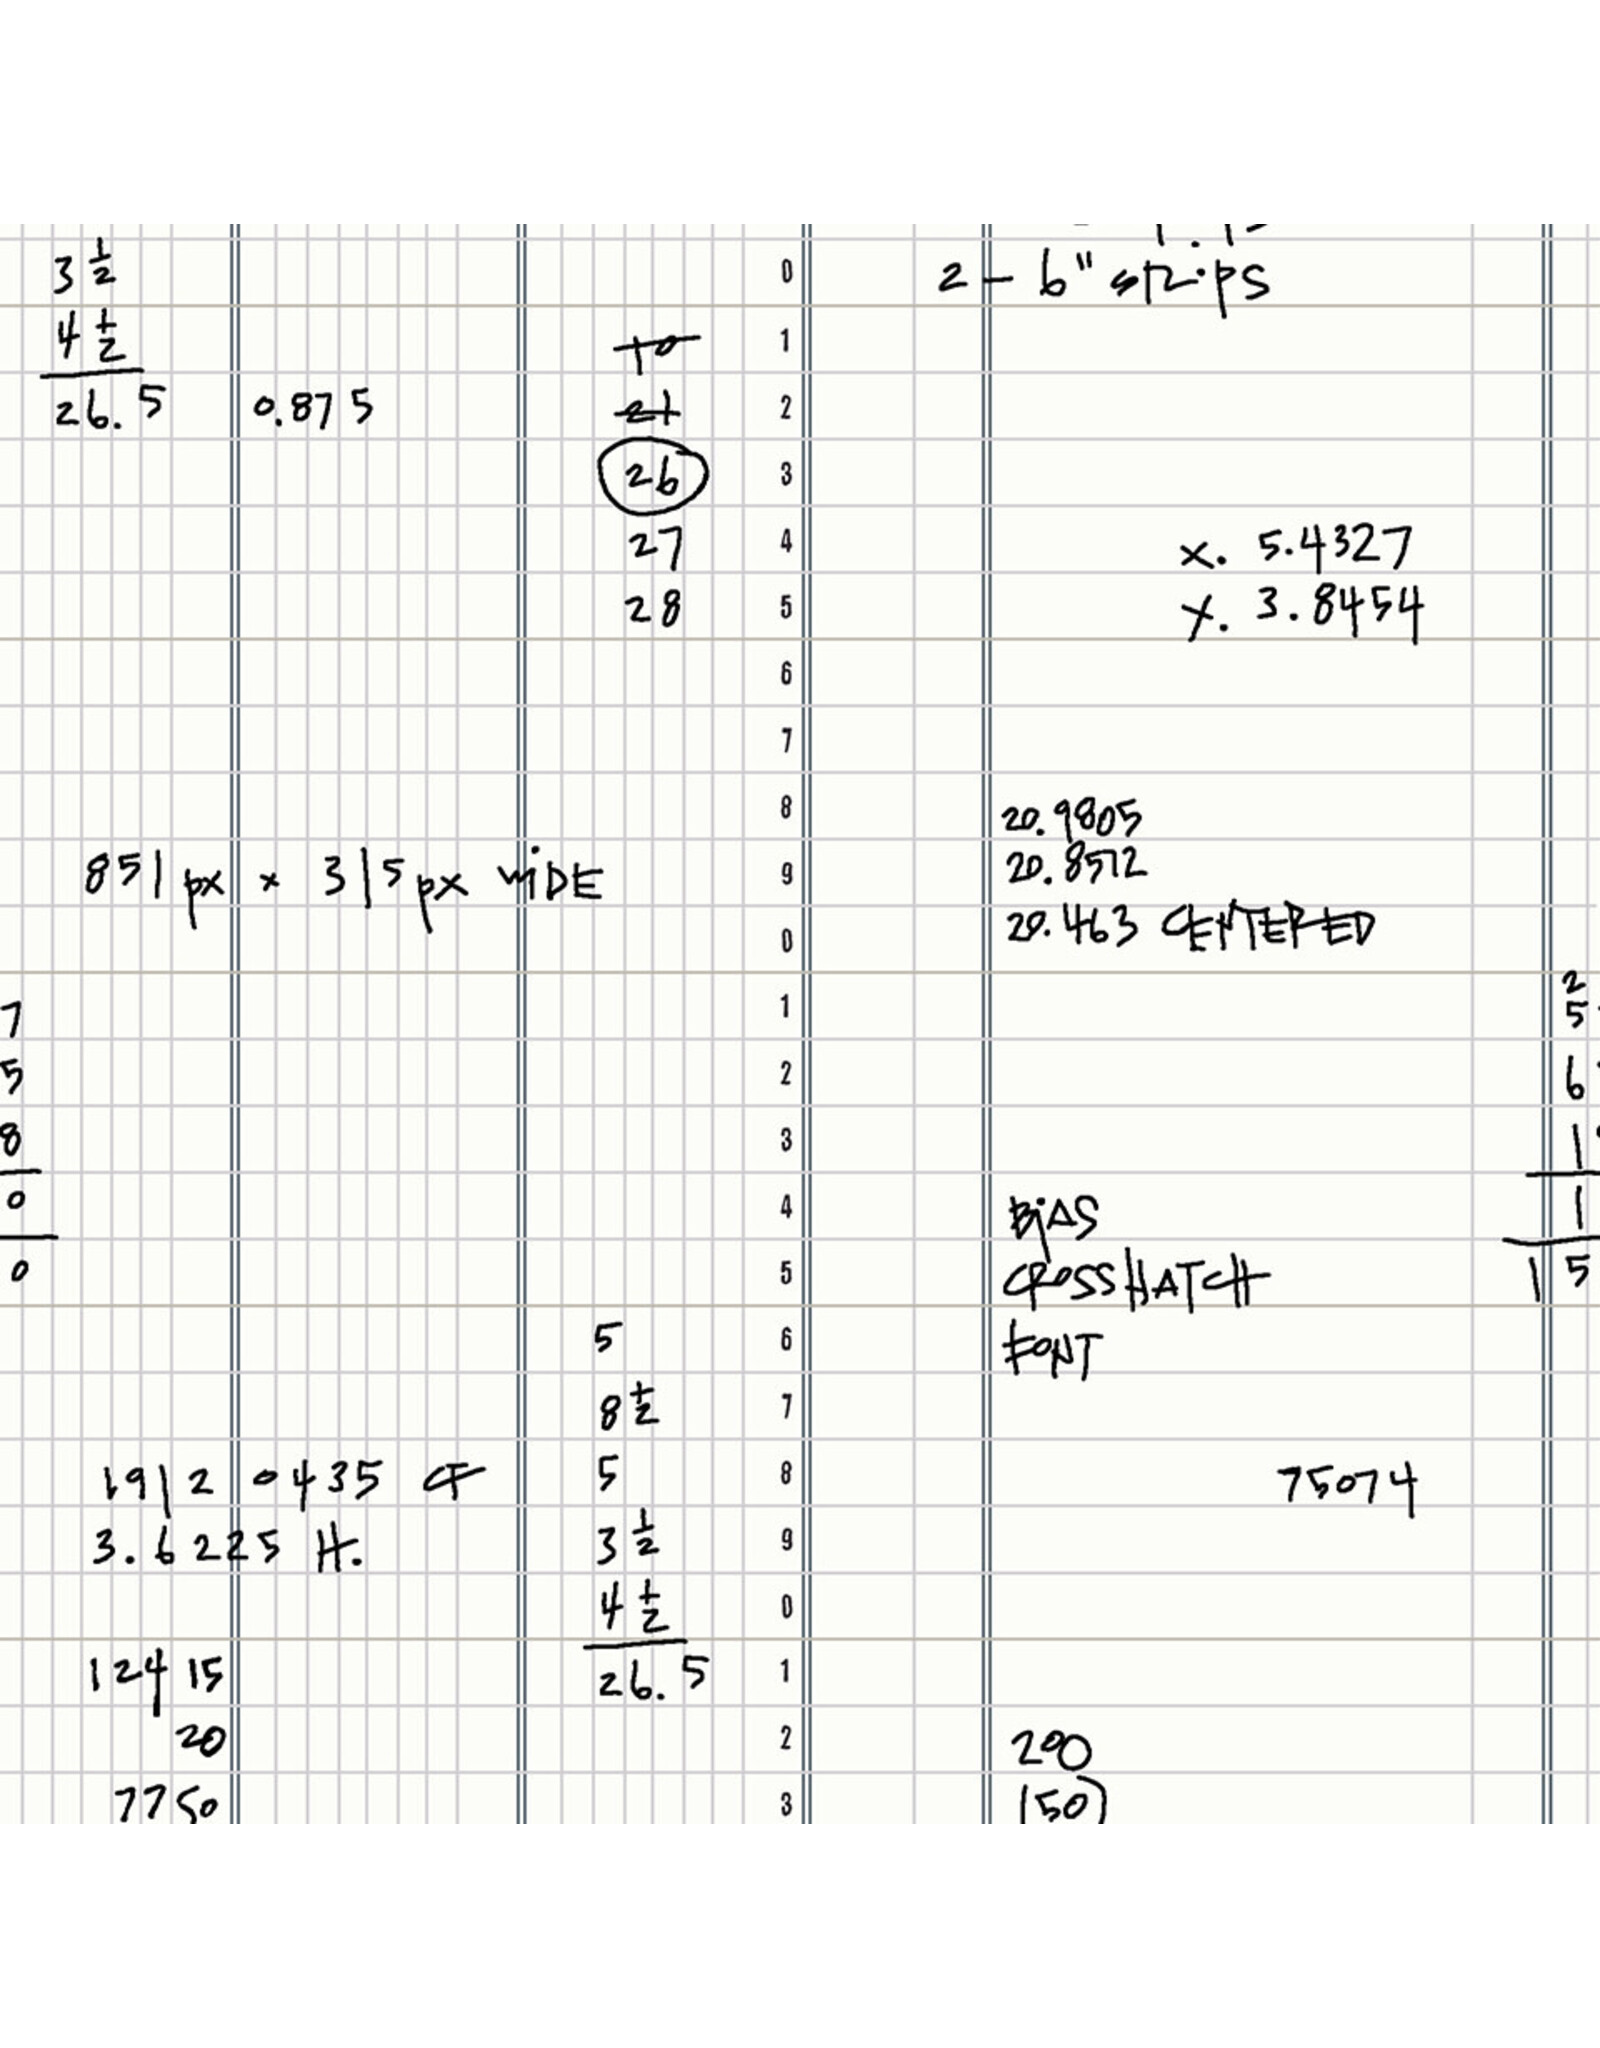 3 1/2
4 1/2
26.5
0.875
10
21
26
27
28
851 px x 315 px WiDE
7
5
8
0
0
1912 0435 CF
3.6225 H.
124 15
20
7750
5
8 1/2
5
3 1/2
4 1/2
26.5
0
1
2
3
4
5
6
7
8
9
0
1
2
3
4
5
6
7
8
9
0
1
2
3
2 - 6" strips
x. 5.4327
y. 3.8454
20.9805
20.8512
20.463 CENTERED
BiAS
CROSSHATCH
FONT
75074
200
(50)
2
5
6
1
1
15